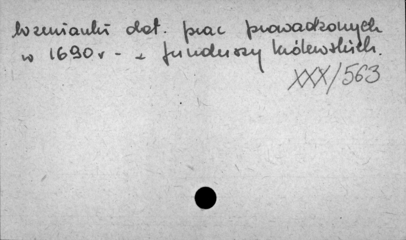 Wzmianki dot. prac prowadzonych
w 1690 r - z funduszy królewskich.
XXX/563